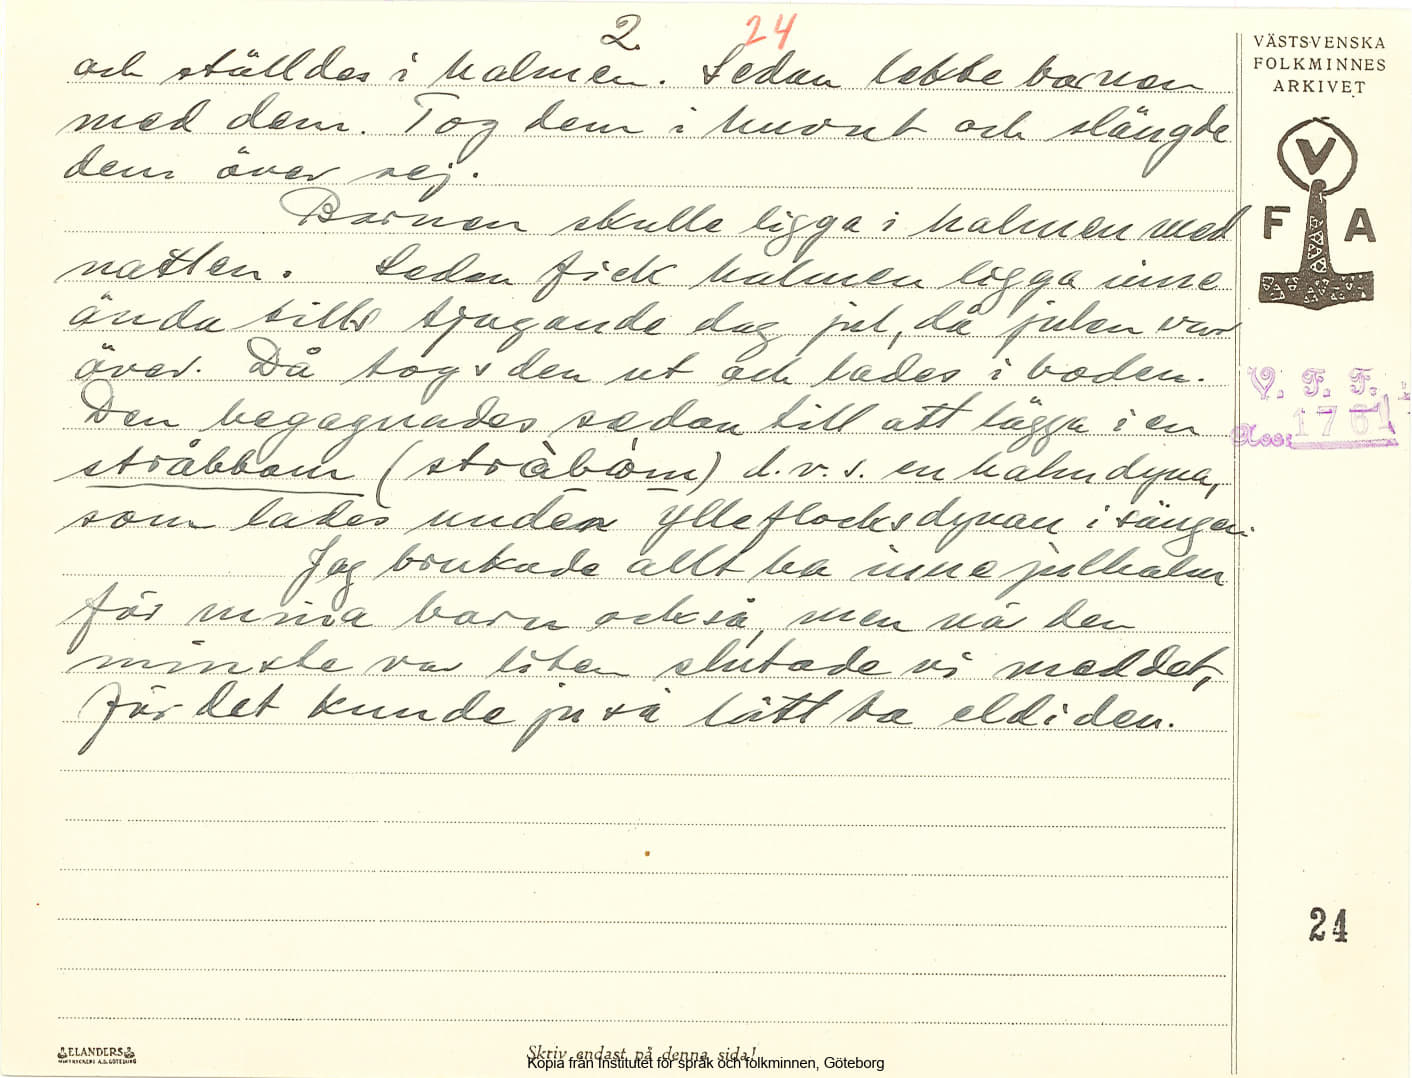 2.
24
och ställdes i halmen. Sedan lekte barnen
med dem. Tog dem i huvut och slängde
dem över sej.
Barnen skulle ligga i halmen med
natten. Sedan fick halmen ligga inne
ända till tjugande dag jul, då julen var
över. Då togs den ut och lades i boden.
Den begagnades sedan till att lägga i en
stråbbom (stràbòm) d.v.s. en halmdyna,
som lades under ylleflocksdynan i sängen.
Jag brukade allt ha inne julhalm
för mina barn också, men nä den
minste var liten slutade vi med det,
för det kunde ju så lätt ta eld i den.
VÄSTSVENSKA
FOLKMINNES
ARKIVET
V
F A
V. F. F.
Acc: 1761
24
ELANDERS
Skriv endast på denna sida!
Kopia från Institutet för språk och folkminnen, Göteborg